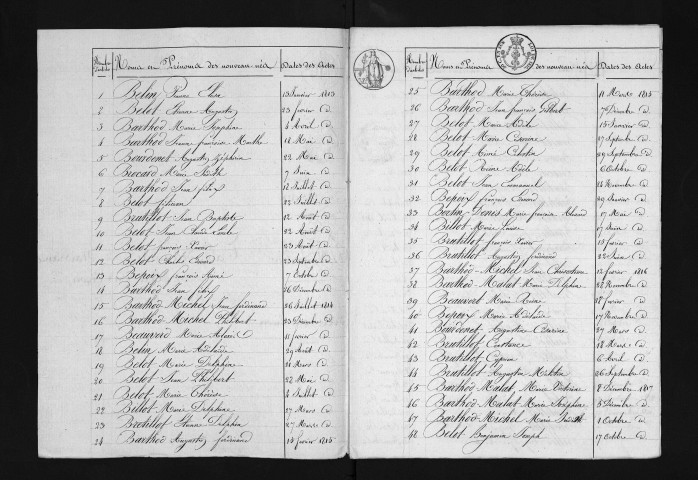 Noms et Prénoms des nouveau nés Dates des Actes
1 Belin Pierre 13 Janvier 1813
2 Belot Jeanne Augustine 23 février d.
3 Barthod Marie Joséphine 4 Avril d.
4 Barthod Jeanne françoise Marthe 18 Mai d.
5 Bourdenet Augustin Zéphirin 22 Mai d.
6 Brocard Marie Judith 7 Juin d.
7 Barthod Jean félix 12 Juillet d.
8 Belot 22 Juillet d.
9 Bratillot Jean Baptiste 12 Août d.
10 Belot Jean Claude 22 Août d.
11 Belot françois Xavier 23 Août d.
12 Belot Charles Edouard 23 Septembre d.
13 Bepoix françois Aimé 7 Octobre d.
14 Barthod Jean félix 26 Décembre d.
15 Barthod Michel Jean ferdinand 26 Juillet 1814
16 Barthod Michel Philibert 23 Décembre d.
17 Beauvoid Marie 11 février d.
18 Belin Marie Adélaïde 29 Août d.
19 Belot Marie Delphine 21 Mars d.
20 Belot Jean Philibert 22 Mai d.
21 Belot Marie Thérèse 4 Juillet d.
22 Billot Marie Delphine 27 Mars d.
23 Bratillot Jeanne Delphine 27 Mars d.
24 Barthod Augustin ferdinand 14 février 1815
Noms et Prénoms des nouveau nés Dates des Actes
25 Barthod Marie Thérèse 11 Mars 1815
26 Barthod Jean françois Gilbert 7 Décembre d.
27 Belot Marie Adèle 15 Janvier d.
28 Belot Marie Césarine 27 Septembre d.
29 Belot Aimé Célestin 29 Septembre d.
30 Belot Reine Adèle 6 Octobre d.
31 Belot Jean Emmanuel 24 Novembre d.
32 Bepoix françois Edouard 29 Janvier d.
33 Bertin Denis Marie françoise 07 Mai d.
34 Billot Marie Louise 07 Juin d.
35 Bratillot françois Xavier 13 février d.
36 Bratillot Augustin ferdinand 22 Juin d.
37 Barthod Michel Jean 12 février 1816
38 Barthod Malat Marie Delphine 28 Novembre d.
39 Beauvoid Marie Anne 18 février d.
40 Bepoix Marie Adélaïde 17 Novembre d.
41 Bourdenet Augustine Césarine 27 Mars d.
42 Bratillot Constance 18 Mars d.
43 Bratillot 6 Avril d.
44 Bratillot Augustin 26 Septembre d.
45 Barthod Malat Marie Victorine 8 Décembre 1817
46 Barthod Malat Marie Joséphine 5 Décembre d.
47 Barthod Michel Marie Judith 1 Octobre d.
48 Belot Benjamin Joseph 17 Octobre d.